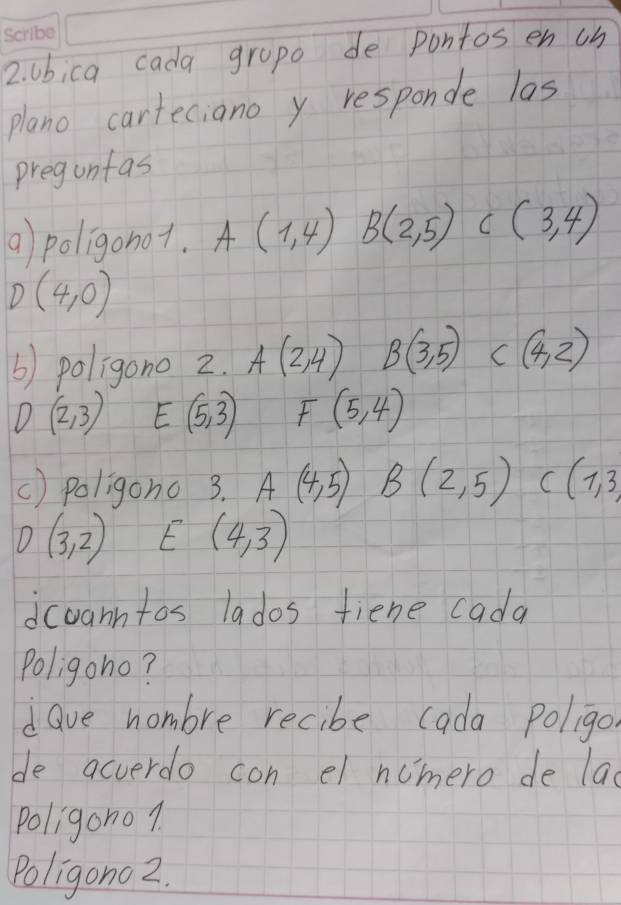 Scribe
2.Ubica cada grupo de puntos en un
plano carteciano y responde las
preguntas
a) poligono1. A (1,4) B(2,5) C (3,4)
D (4,0)
b) poligono 2. A (2,4) B(3,5) C (4,2)
D (2,3) E (5,3) F (5,4)
c) poligono 3. A (4,5) B (2,5) C (1,3
D (3,2) E (4,3)
¿cuanntos lados tiene cada
Poligono?
¿Que nombre recibe cada poligo
de acuerdo con el número de lad
Poligono 1.
Poligono 2.